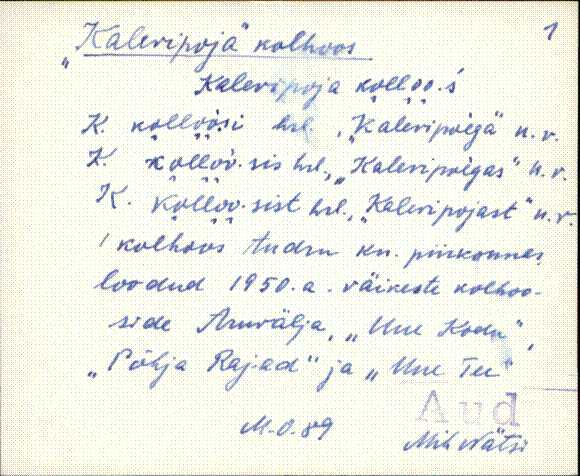 1
„Kaleripoja" kolhoos
Kaleripoja kolloo·s
K. kolloosi hrl. „Kaleripoega" n.r.
K. kolloo·sis hrl., „Kaleripoegas" n.r.
K. kolloo·sist hrl., „Kaleripojast" n.r.
kolhoos Audru kn. piirkonnas,
loodud 1950.a. väikeste kolhoo-
side Aruvälja, „Uue Kodu",
„Põhja Rajad" ja „Uue Tee"
Aud
M.O. 89